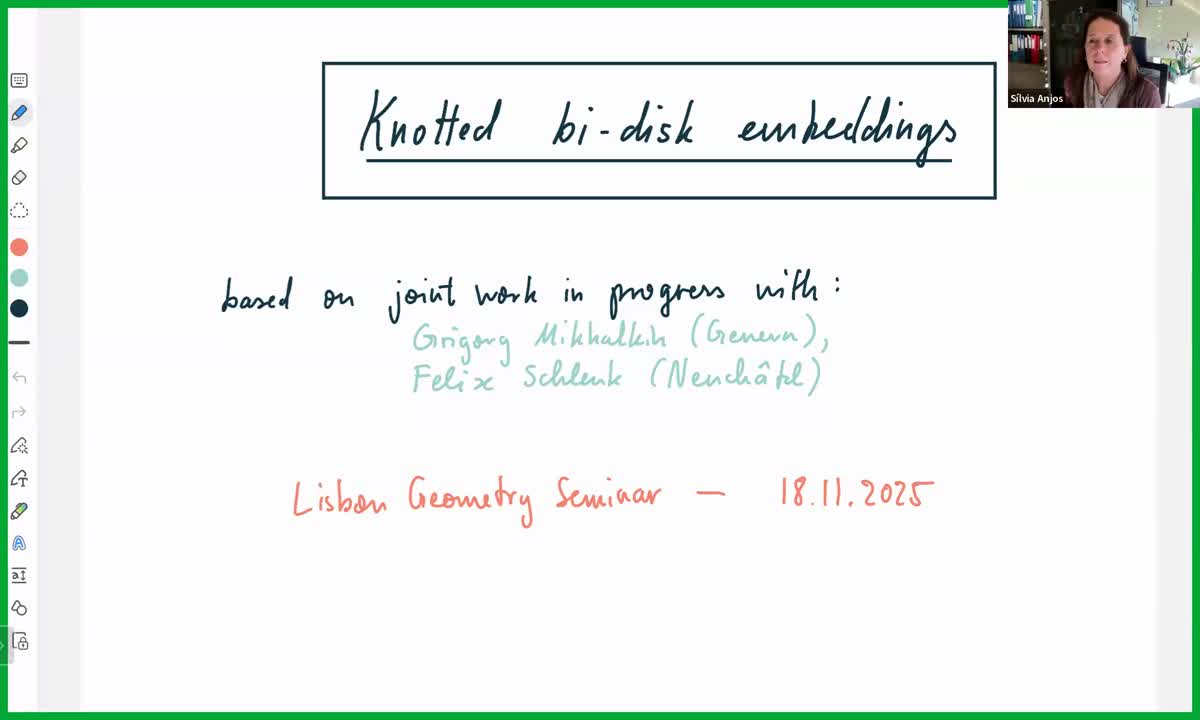 Knotted bi-disk embeddings
Sílvia Anjos
based on joint work in progress with:
Grigory Mikhalkin (Geneva),
Felix Schlenk (Neuchâtel)
Lisbon Geometry Seminar — 18.11.2025